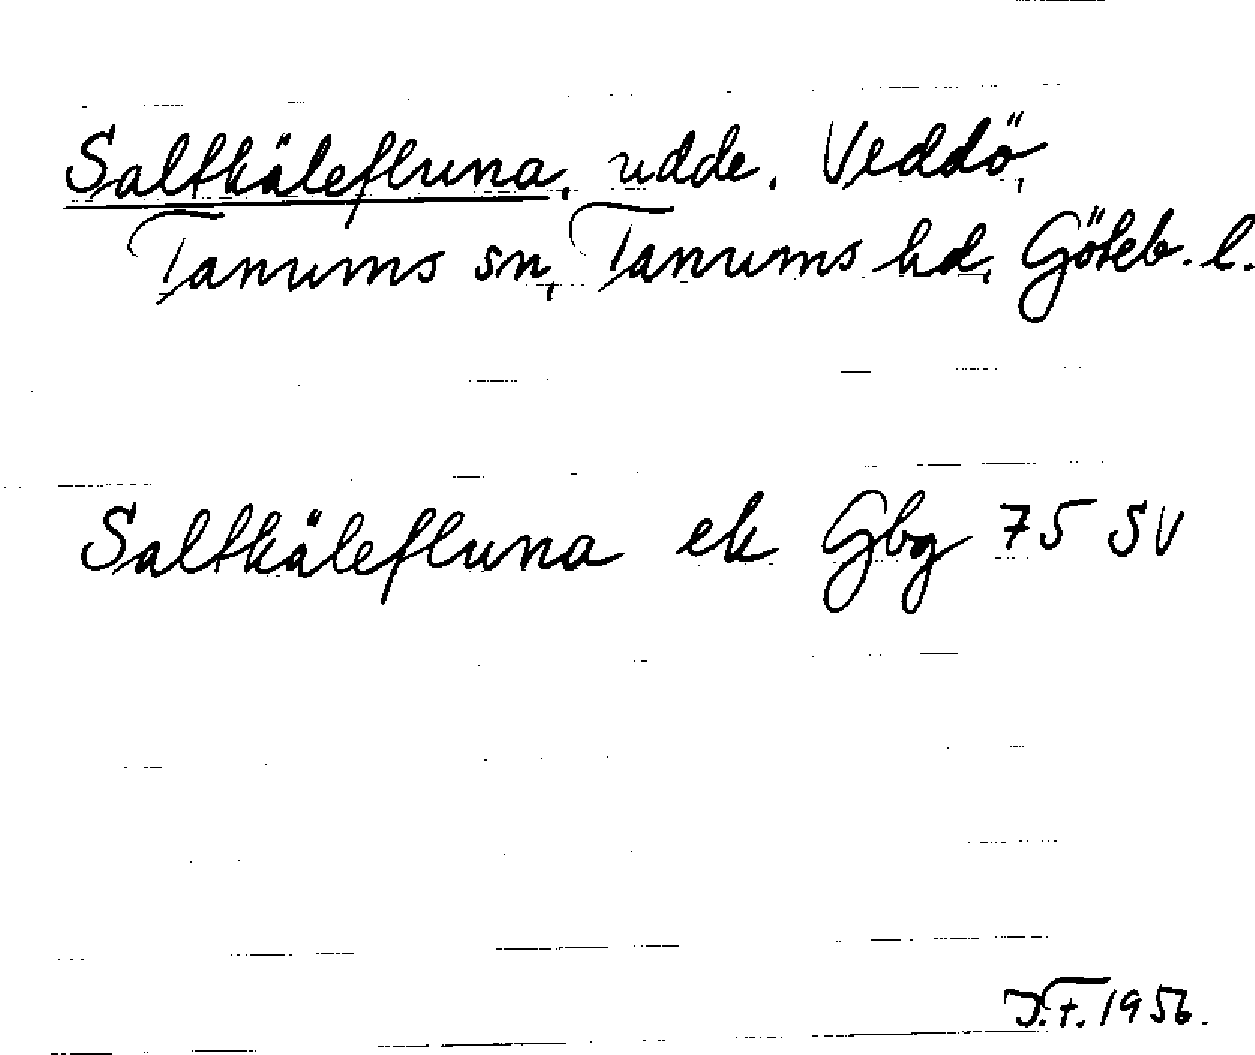 Saltkälefluna, udde. Veddö,
Tanums sn, Tanums hd, Göteb. l.
Saltkälefluna ek Gbg 75 SV
J.F. 1956.